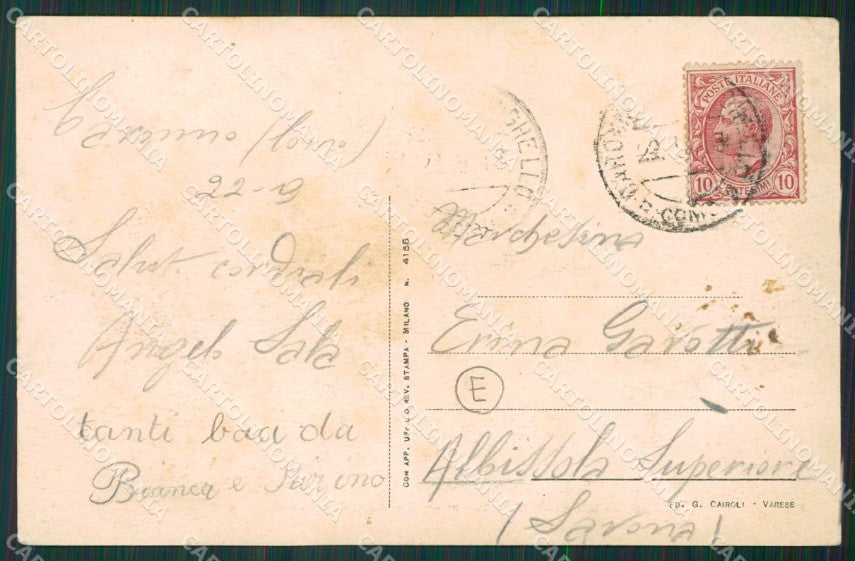 Carimo (Como)
22-9
Salut. cordiali
Angelo Sala
tanti baci da
Bianca e
CON APP. UFF. REV. STAMPA - MILANO N. 4156
POSTE ITALIANE
10 CENTESIMI 10
COMO
Marchesina
Erina Gavotti
E
Albissola Superiore
(Savona)
ED. G. CAIROLI - VARESE
CARTOLINOMANIA